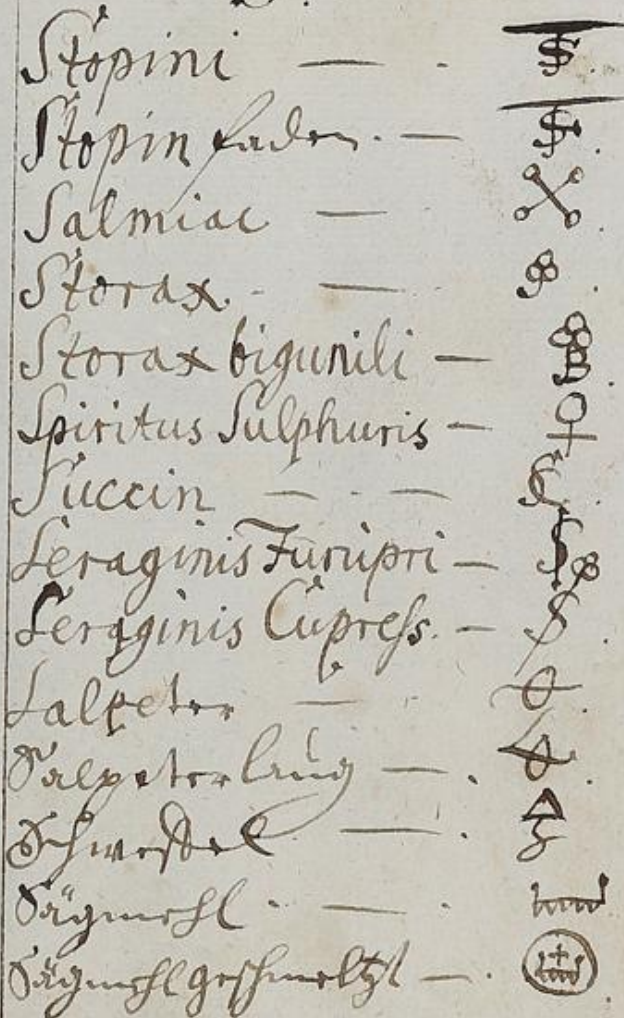 Stopini —
Stopin faden. —
Salmiac —
Storax. —
Storax bigunili —
Spiritus Sulphuris —
Succin — —
Seraginis Juniperi —
Seraginis Cupress. —
Salpeter —
Salpeter laug —
Schweffel —
Sägmehl. —
Sägmehl geschmeltzt —